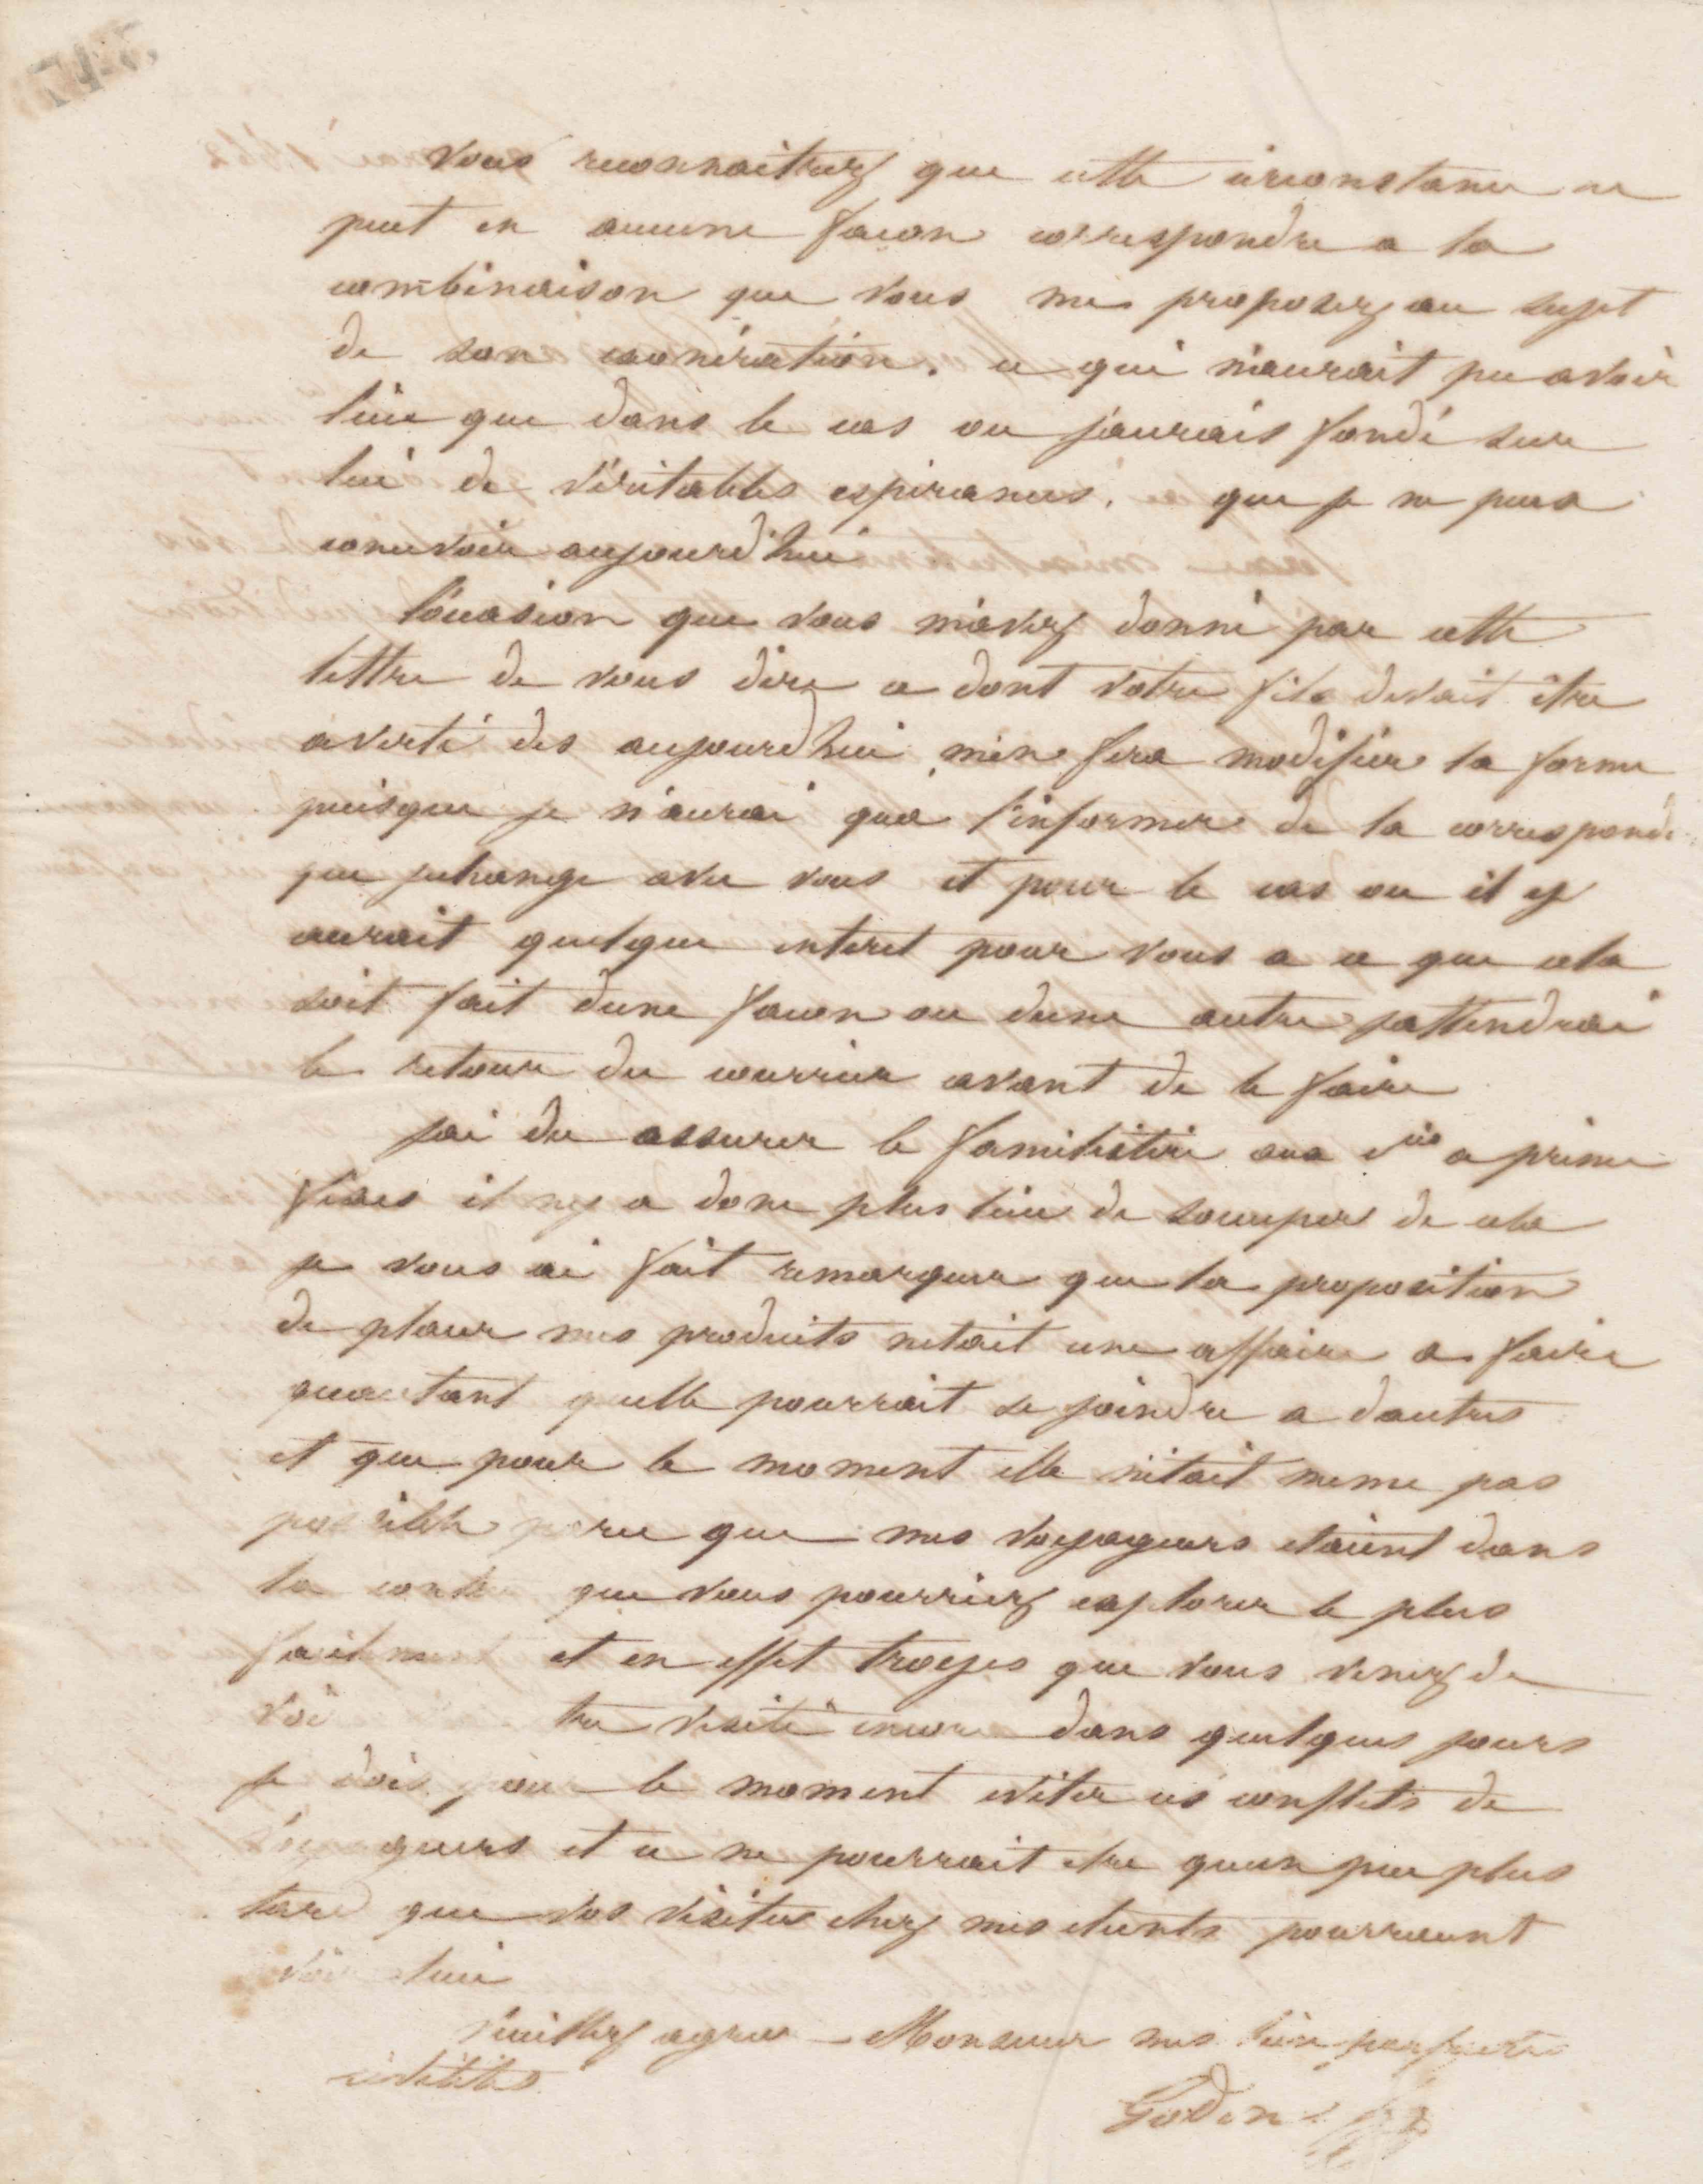 Vous reconnaitrez que cette circonstance ne
peut en aucune facon correspondre a la
combinaison que vous me proposez au sujet
de son exonération. ce qui n'aurait pu avoir
lieu que dans le cas ou j'aurais fondé sur
lui de véritables espérances. que je ne peux
concevoir aujourd'hui
l'occasion que vous m'avez donné par cette
lettre de vous dire ce dont votre fils devait être
averti des aujourd'hui m'en fera modifier la forme
puisque je n'aurai qua l'informer de la correspond
que jechange avec vous et pour le cas ou il y
aurait quelque interet pour vous a ce que cela
soit fait dune facon ou dune autre jattendrai
le retour du courrier avant de le faire
jai du assurer le familistère aux cies a prime
fixes il ny a donc plus lieu de soccuper de cela
je vous ai fait remarquer que la proposition
de placer mes produits netait une affaire a faire
quautant quelle pourrait se joindre a dautres
et que pour le moment elle n'était meme pas
possible parce que mes voyageurs etaient dans
la contrée que vous pourriez explorer le plus
facilement et en effet troyes que vous venez de
voir tre visité encore dans quelques jours
je dois pour le moment eviter ces conflets de
voyageurs et ce ne pourrait etre quun peu plus
tard que vos visites chez mes clients pourraient
avoir lieu
Veuillez agreer Monsieur mes bien parfaites
civilités
Godin